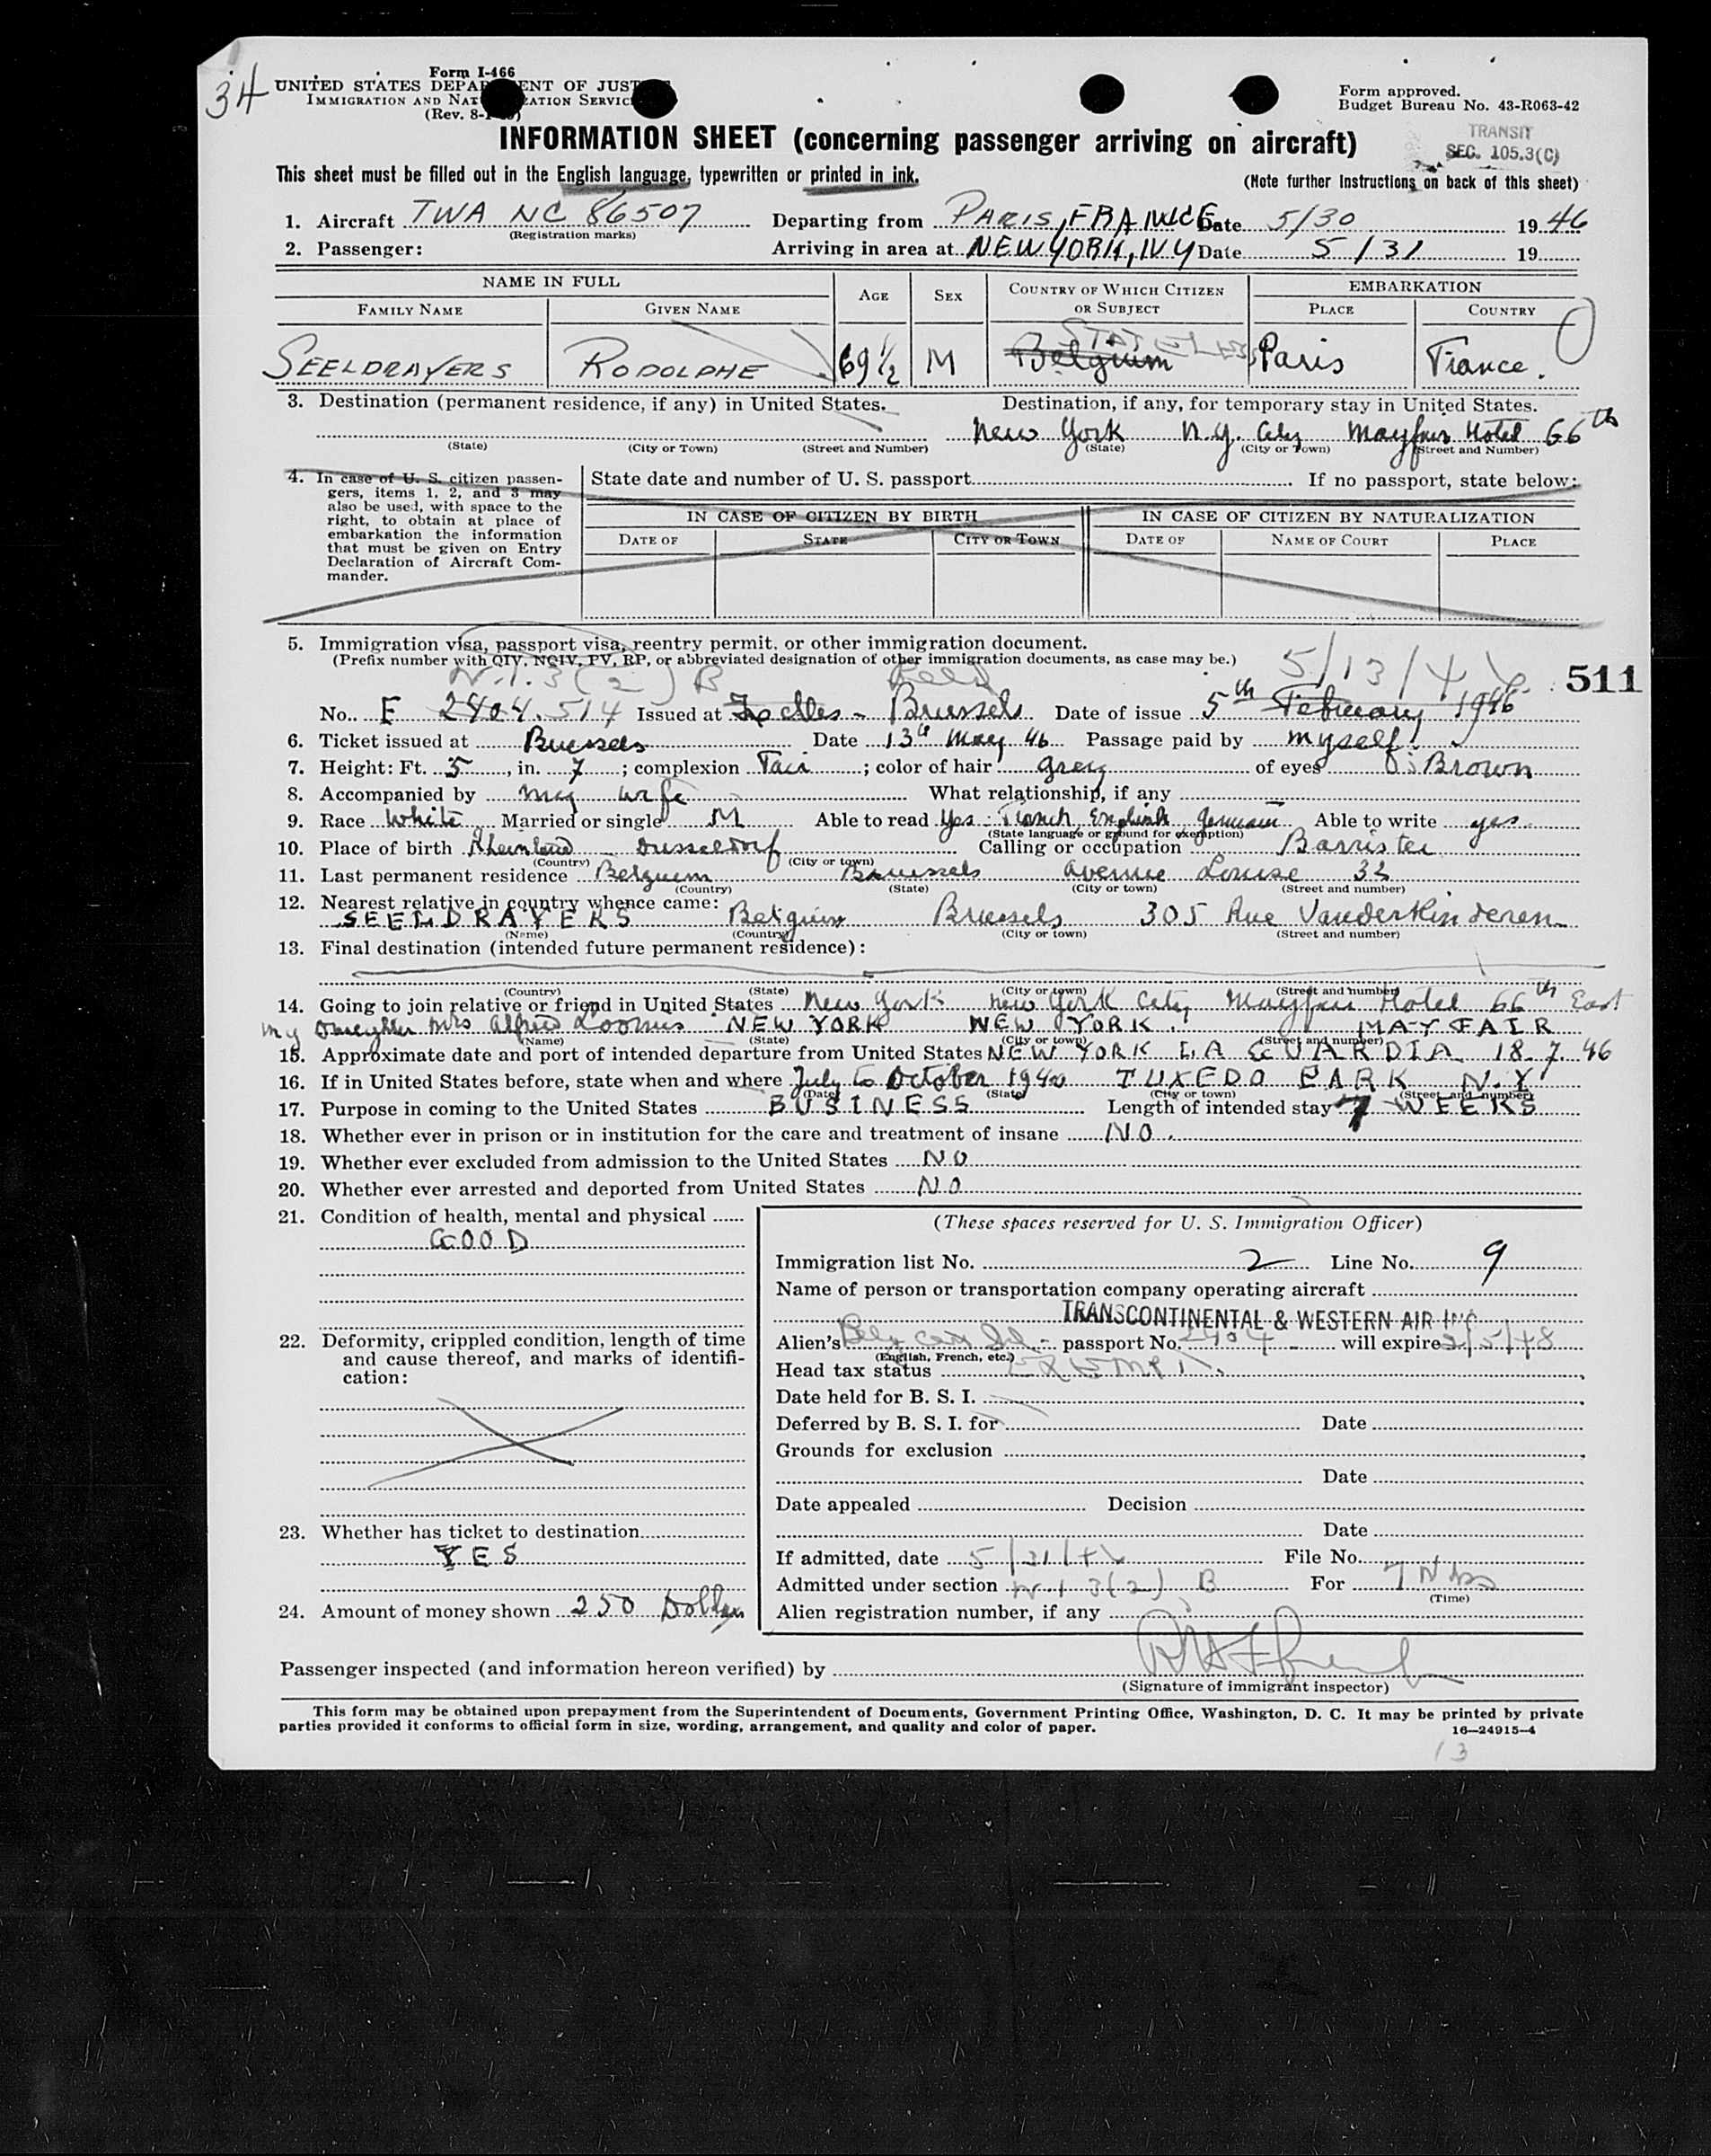 34
Form I-466
UNITED STATES DEPARTMENT OF JUSTICE
IMMIGRATION AND NATURALIZATION SERVICE
(Rev. 8-
Form approved.
Budget Bureau No. 43-R063-42
INFORMATION SHEET (concerning passenger arriving on aircraft)
TRANSIT
SEC. 105.3(C)
This sheet must be filled out in the English language, typewritten or printed in ink.
(Note further instructions on back of this sheet)
1. Aircraft TWA NC 86507 Departing from PARIS, FRANCE Date 5/30 1946
(Registration marks)
2. Passenger: Arriving in area at NEW YORK, NY Date 5/31 19
NAME IN FULL AGE SEX COUNTRY OF WHICH CITIZEN OR SUBJECT EMBARKATION
FAMILY NAME GIVEN NAME PLACE COUNTRY
STATELESS
SEELDRAYERS RODOLPHE 69 1/2 M Belgium Paris France.
3. Destination (permanent residence, if any) in United States. Destination, if any, for temporary stay in United States.
New York N.Y. City Mayfair Hotel 66th
(State) (City or Town) (Street and Number) (State) (City or Town) (Street and Number)
4. In case of U. S. citizen passengers, items 1, 2, and 3 may also be used, with space to the right, to obtain at place of embarkation the information that must be given on Entry Declaration of Aircraft Commander.
State date and number of U. S. passport If no passport, state below:
IN CASE OF CITIZEN BY BIRTH IN CASE OF CITIZEN BY NATURALIZATION
DATE OF STATE CITY OR TOWN DATE OF NAME OF COURT PLACE
5. Immigration visa, passport visa, reentry permit, or other immigration document.
(Prefix number with QIV, NQIV, PV, RP, or abbreviated designation of other immigration documents, as case may be.)
3(2) B 5/13/46
511
No. F 2404.514 Issued at Ixelles - Brussels Date of issue 5th February 1946
6. Ticket issued at Brussels Date 13th May 46 Passage paid by myself
7. Height: Ft. 5, in. 7; complexion Fair; color of hair grey of eyes Brown
8. Accompanied by my wife What relationship, if any
9. Race White Married or single M Able to read Yes: French English German Able to write yes
(State language or ground for exemption)
10. Place of birth Rheinland - Dusseldorf Calling or occupation Barrister
(Country) (City or town)
11. Last permanent residence Belgium Brussels avenue Louise 33
(Country) (State) (City or town) (Street and number)
12. Nearest relative in country whence came:
SEELDRAYERS Belgium Brussels 305 Rue Vanderkinderen
(Name) (Country) (City or town) (Street and number)
13. Final destination (intended future permanent residence):
(Country) (State) (City or town) (Street and number)
14. Going to join relative or friend in United States New York New York City Mayfair Hotel 66th East
my Daughter Mrs Alfred Loomis NEW YORK NEW YORK. MAYFAIR
(Name) (State) (City or town) (Street and number)
15. Approximate date and port of intended departure from United States NEW YORK LA GUARDIA 18.7.46
16. If in United States before, state when and where July to October 1940 TUXEDO PARK N.Y
(Date) (State) (City or town) (Street and number)
17. Purpose in coming to the United States BUSINESS Length of intended stay 7 WEEKS
18. Whether ever in prison or in institution for the care and treatment of insane NO.
19. Whether ever excluded from admission to the United States NO
20. Whether ever arrested and deported from United States NO
21. Condition of health, mental and physical
GOOD
22. Deformity, crippled condition, length of time and cause thereof, and marks of identification:
23. Whether has ticket to destination
YES
24. Amount of money shown 250 Dollars
(These spaces reserved for U. S. Immigration Officer)
Immigration list No. 2 Line No. 9
Name of person or transportation company operating aircraft
TRANSCONTINENTAL & WESTERN AIR INC
Alien's passport No. 2404 will expire 2/5/48
(English, French, etc.)
Head tax status EXEMPT.
Date held for B. S. I.
Deferred by B. S. I. for Date
Grounds for exclusion
Date
Date appealed Decision
Date
If admitted, date 5/31/46 File No.
Admitted under section 3(2) B For
(Time)
Alien registration number, if any
Passenger inspected (and information hereon verified) by
(Signature of immigrant inspector)
This form may be obtained upon prepayment from the Superintendent of Documents, Government Printing Office, Washington, D. C. It may be printed by private
parties provided it conforms to official form in size, wording, arrangement, and quality and color of paper.
16—24915-4
13